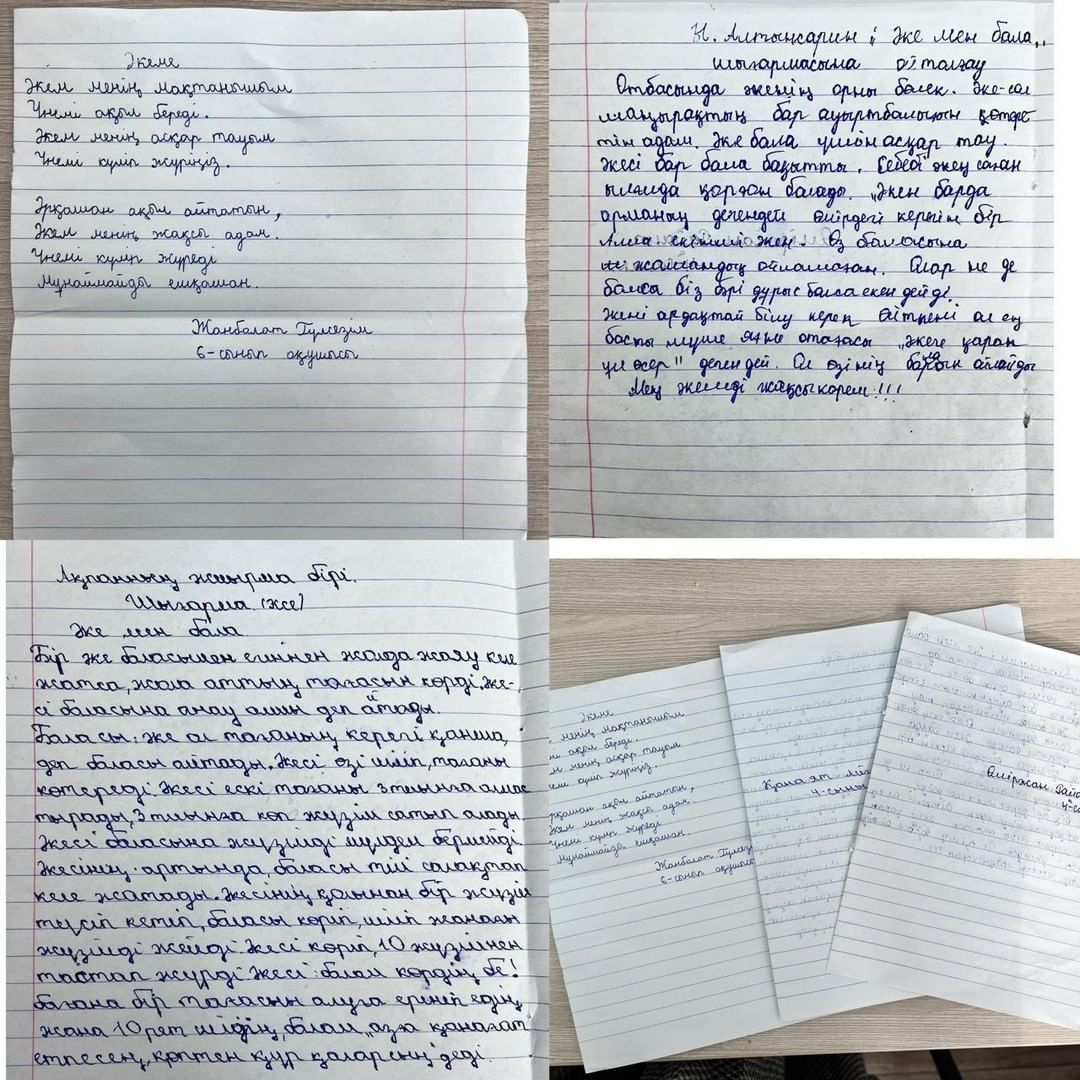 Әкеме
Әкем менің мақтанышым
Үнемі ақыл береді.
Әкем менің асқар тауым
Үнемі күліп жүріңіз.
Әрқашан ақыл айтатын,
Әкем менің жақсы адам.
Үнемі күліп жүреді
Мұңаймайды ешқашан.
Жанбалат Гүлсезім
6-сынып оқушысы
Ы. Алтынсарин "Әке мен бала"
шығармасына ой толғау
Отбасында әкенің орны бөлек. Әке-ол
шаңырақтың бар ауыртбалығын көтере
тін адам. Әке бала үшін асқар тау.
Әкесі бар бала бақытты. Себебі әкең саған
қорған болады. "Әкең барда
арманың дегендей өмірдегі керегің бір
Алла екіншісі әкең. Өз баласына
жамандық ойламаған. Олар не де
болса біз әрі дұрыс болса екен дейді.
Әкені ардақтай білу керек Өйткені ол ең
басты мүше яғни отағасы "әкеге қарап
ұл өсер" дегендей. Ол өзінің барын аямайды
Мен әкемді жақсы көрем!!!
Ақпанның жиырма бірі.
Шығарма (эссе)
Әке мен бала
Бір әке баласымен егіннен жолда жаяу келе
жатса, жолда аттың тағасын көрді. Әке-
сі баласына анау алшы деп айтады.
Баласы: әке ол тағаның керегі қанша,
деп баласы айтады. Әкесі өзі иіліп, тағаны
көтереді. Әкесі ескі тағаны 3 тиынға алма
тырады, 3 тиынға көп жүзім сатып алады.
Әкесі баласына жүзімді мүлдем бермейді
Әкесінің артында, баласы тілі салақтап
келе жатады. Әкесінің қолынан бір жүзім
түсіп кетіп, баласы көріп, иіліп жаңағы
жүзімді жейді. Әкесі көріп, 10 жүзімнен
тастап жүрді. Әкесі: балам көрдің бе!
бағана бір тағасын алуға ерініп едің,
жаңа 10 рет иілдің, балам "азға қанағат
етпесең, көптен құр қаларсың" деді.
Әкеме
менің мақтанышым
ақыл береді.
менің асқар тауым
күліп жүріңіз.
Әрқашан ақыл айтатын,
Әкем менің жақсы адам.
Үнемі күліп жүреді
Мұңаймайды ешқашан.
Жанбалат Гүлсезі
6-сынып оқушыс
Қанаят
4-сыны
Өмірхан